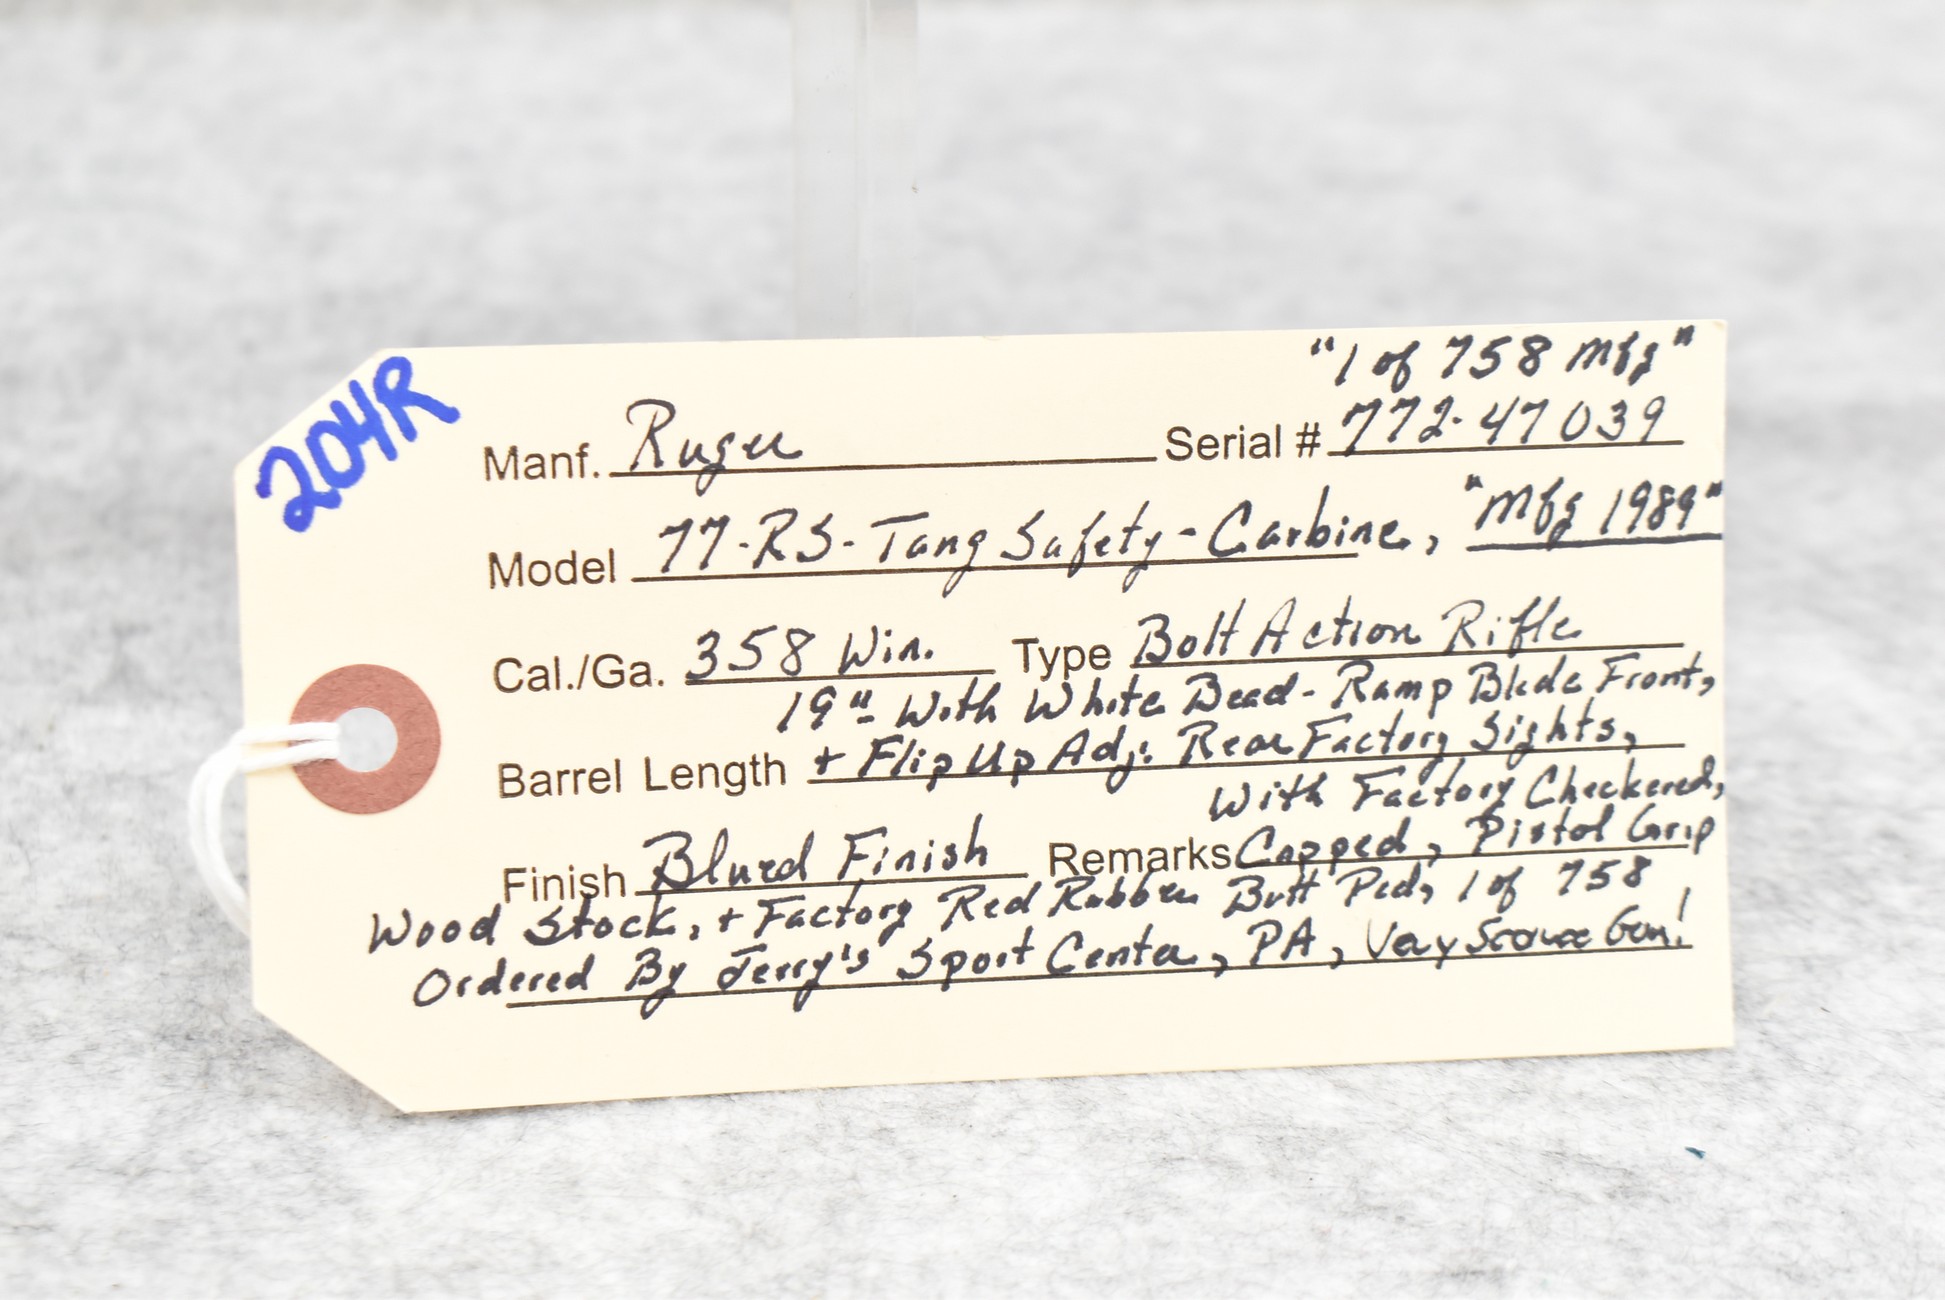 204R
"1 of 758 Mfg"
Manf. Ruger Serial # 772-47039
Model 77-RS-Tang Safety-Carbine, "Mfg 1989"
Cal./Ga. 358 Win. Type Bolt Action Rifle
19" With White Bead-Ramp Blade Front,
Barrel Length + Flip Up Adj. Rear Factory Sights,
With Factory Checkered,
Finish Blued Finish Remarks Capped, Pistol Grip
Wood Stock, + Factory Red Rubber Butt Pad, 1 of 758
Ordered By Jerry's Sport Center, PA, Very Scarce Gun!